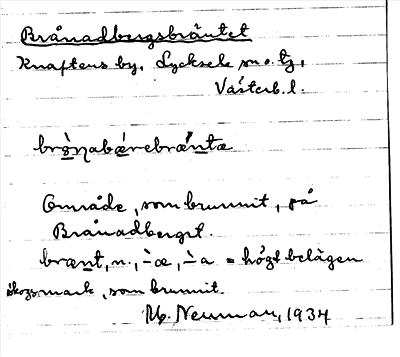 Brånadbergsbräntet
Knaftens by, Lycksele sn o. tg,
Västerb. l.
brònabærebræ̀ntæ
Område, som brunnit, på
Brånadberget.
brænt, n., -̀æ, -̀a = högt belägen
skogsmark, som brunnit.
M. Neuman, 1934